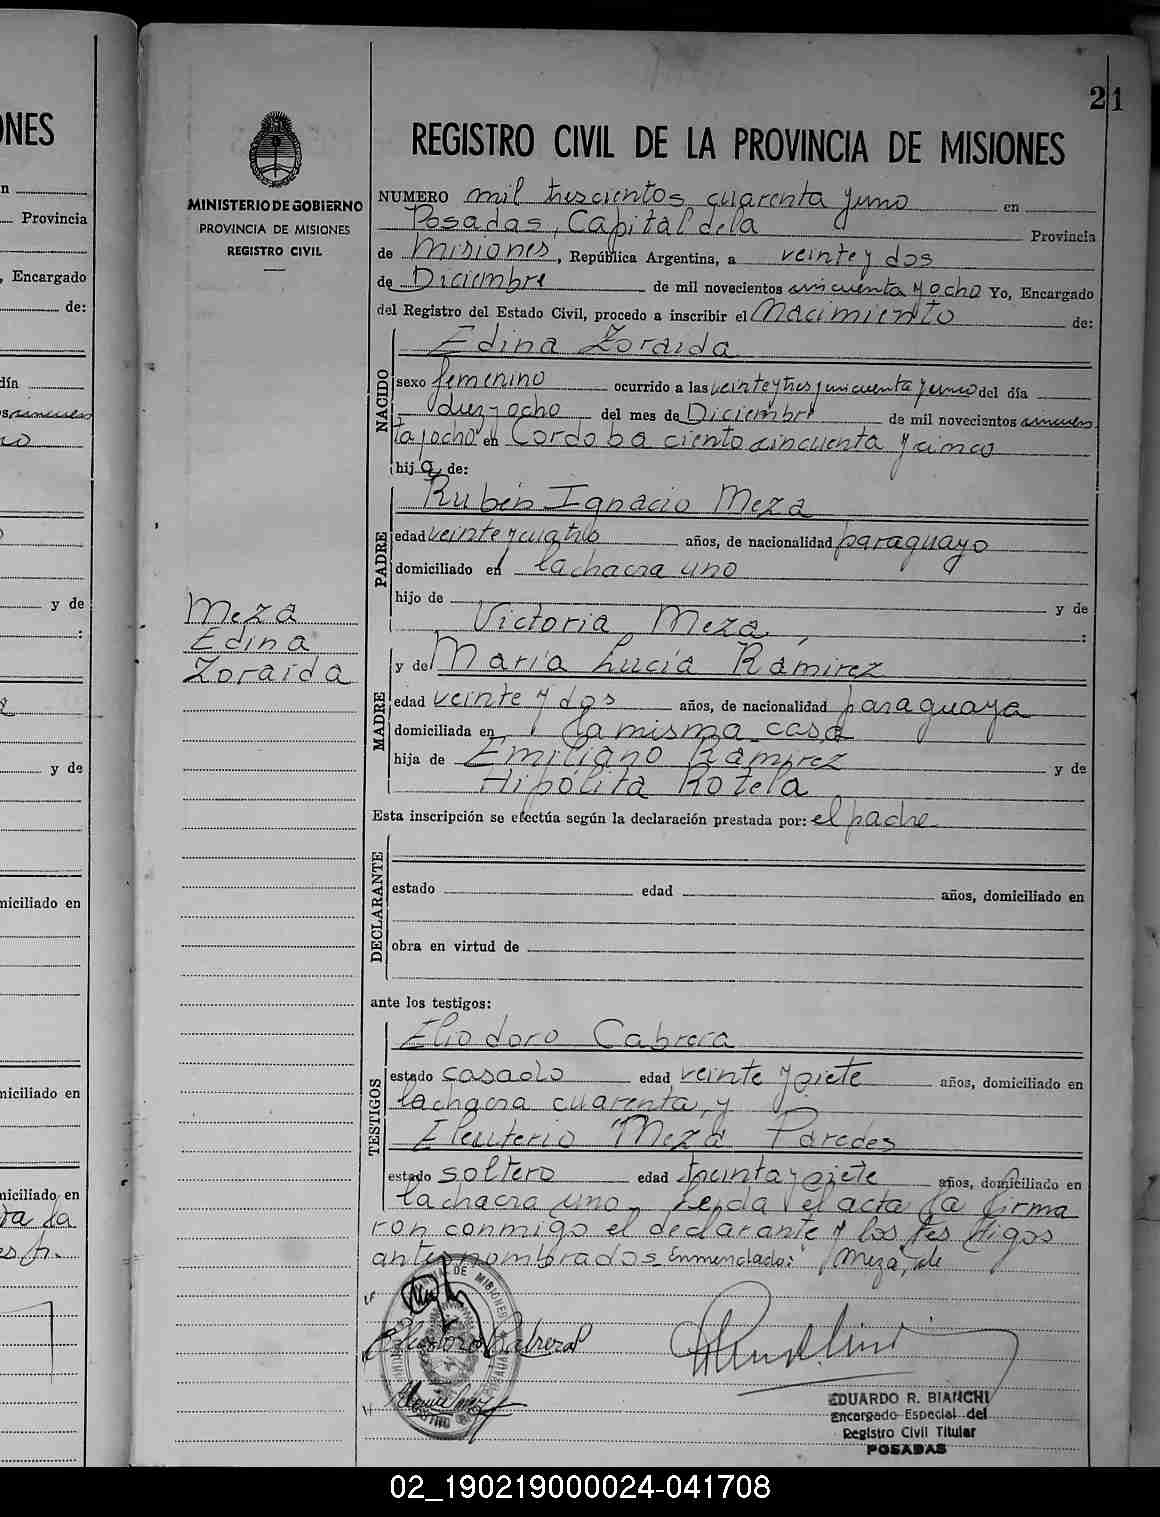 21
ONES
REGISTRO CIVIL DE LA PROVINCIA DE MISIONES
MINISTERIO DE GOBIERNO
PROVINCIA DE MISIONES
REGISTRO CIVIL
NUMERO mil trescientos cuarenta y uno en
Posadas, Capital de la Provincia
de Misiones, República Argentina, a veinte y dos
de Diciembre de mil novecientos cincuenta y ocho Yo, Encargado
del Registro del Estado Civil, procedo a inscribir el Nacimiento de:
NACIDO
Edina Zoraida
sexo femenino ocurrido a las veinte y tres y cincuenta y uno del día
diez y ocho del mes de Diciembre de mil novecientos cincuen
ta y ocho en Cordoba ciento cincuenta y cinco
hij a de:
PADRE
Rubén Ignacio Meza
edad veinte y cuatro años, de nacionalidad paraguayo
domiciliado en la chacra uno
hijo de y de
Victoria Meza, :
Meza
Edina
Zoraida
MADRE
y de María Lucía Ramirez
edad veinte y dos años, de nacionalidad paraguaya
domiciliada en la misma casa
hija de Emiliano Ramirez y de
Hipólita Rotela
Esta inscripción se efectúa según la declaración prestada por: el padre
DECLARANTE
estado edad años, domiciliado en
obra en virtud de
ante los testigos:
TESTIGOS
Eliodoro Cabrera
estado casado edad veinte y siete años, domiciliado en
la chacra cuarenta, y
Eleuterio Meza Paredes
estado soltero edad treinta y siete años, domiciliado en
la chacra uno. Leida el acta la firma
ron conmigo el declarante y los testigos
antes nombrados. Enmendado: "Meza, de
Eliodoro Cabrera
EDUARDO R. BIANCHI
Encargado Especial del
Registro Civil Titular
POSADAS
n
Provincia
, Encargado
de:
día
y de
:
y de
miciliado en
miciliado en
niciliado en
02_190219000024-041708